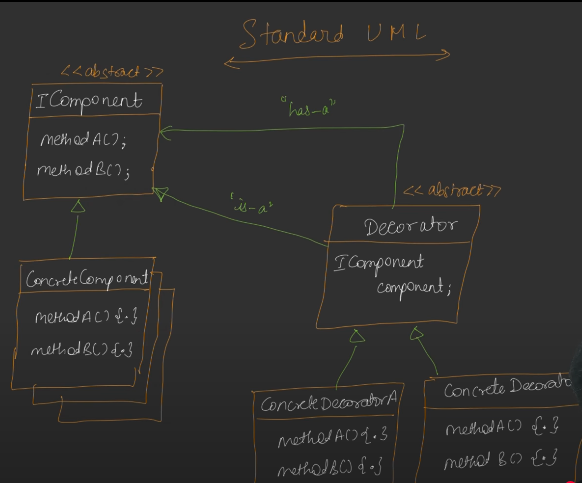 Standard UML
<<abstract>>
IComponent
methodA();
methodB();
"has-a"
"is-a"
<<abstract>>
Decorator
IComponent
component;
ConcreteComponent
methodA() {.}
methodB() {.}
ConcreteDecoratorA
methodA() {.}
methodB() {.}
Concrete Decorat
methodA() {.}
method B() {.}